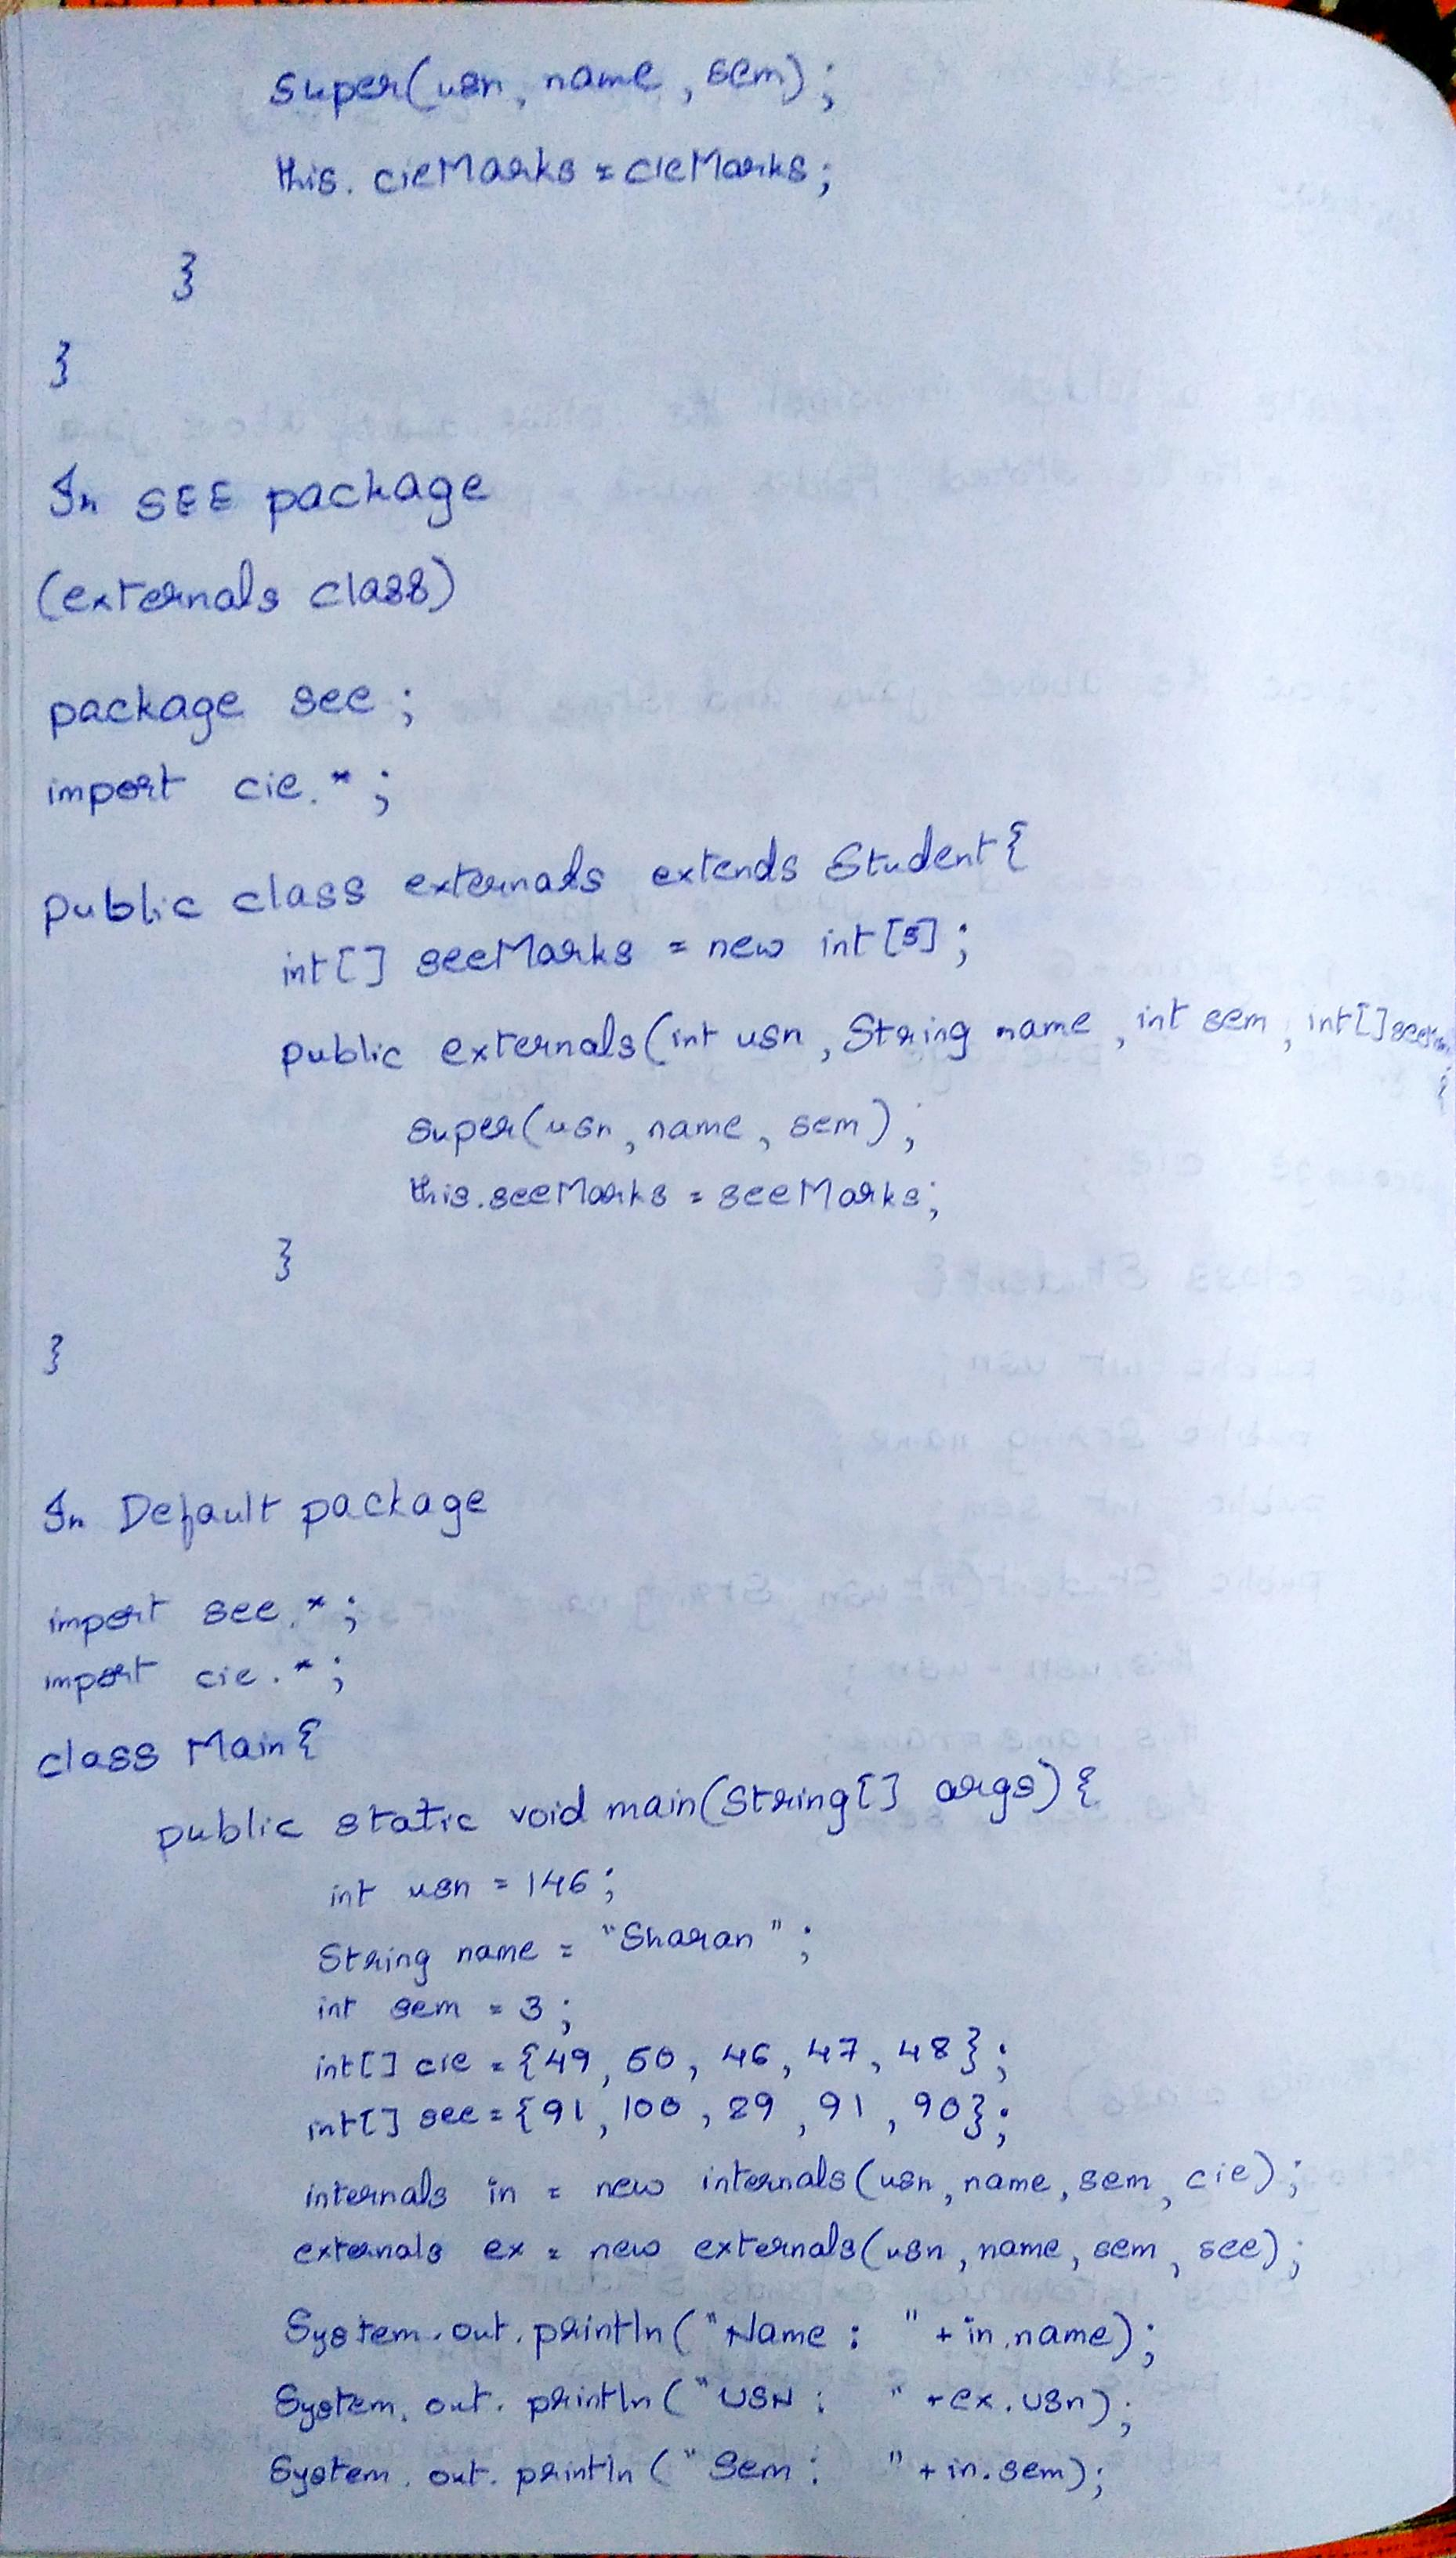 super(usn, name, sem);
this.cieMarks = cieMarks;
}
}
In SEE package
(externals class)
package see;
import cie.*;
public class externals extends Student{
int[] seeMarks = new int[5];
public externals(int usn, String name, int sem, int[]
{
super(usn, name, sem);
this.seeMarks = seeMarks;
}
}
In Default package
import see.*;
import cie.*;
class Main{
public static void main(String[] args){
int usn = 146;
String name = "Sharan";
int sem = 3;
int[] cie = {49, 50, 46, 47, 48};
int[] see = {91, 100, 89, 91, 90};
internals in = new internals(usn, name, sem, cie);
externals ex = new externals(usn, name, sem, see);
System.out.println("Name : " + in.name);
System.out.println("USN : " + ex.usn);
System.out.println("Sem : " + in.sem);